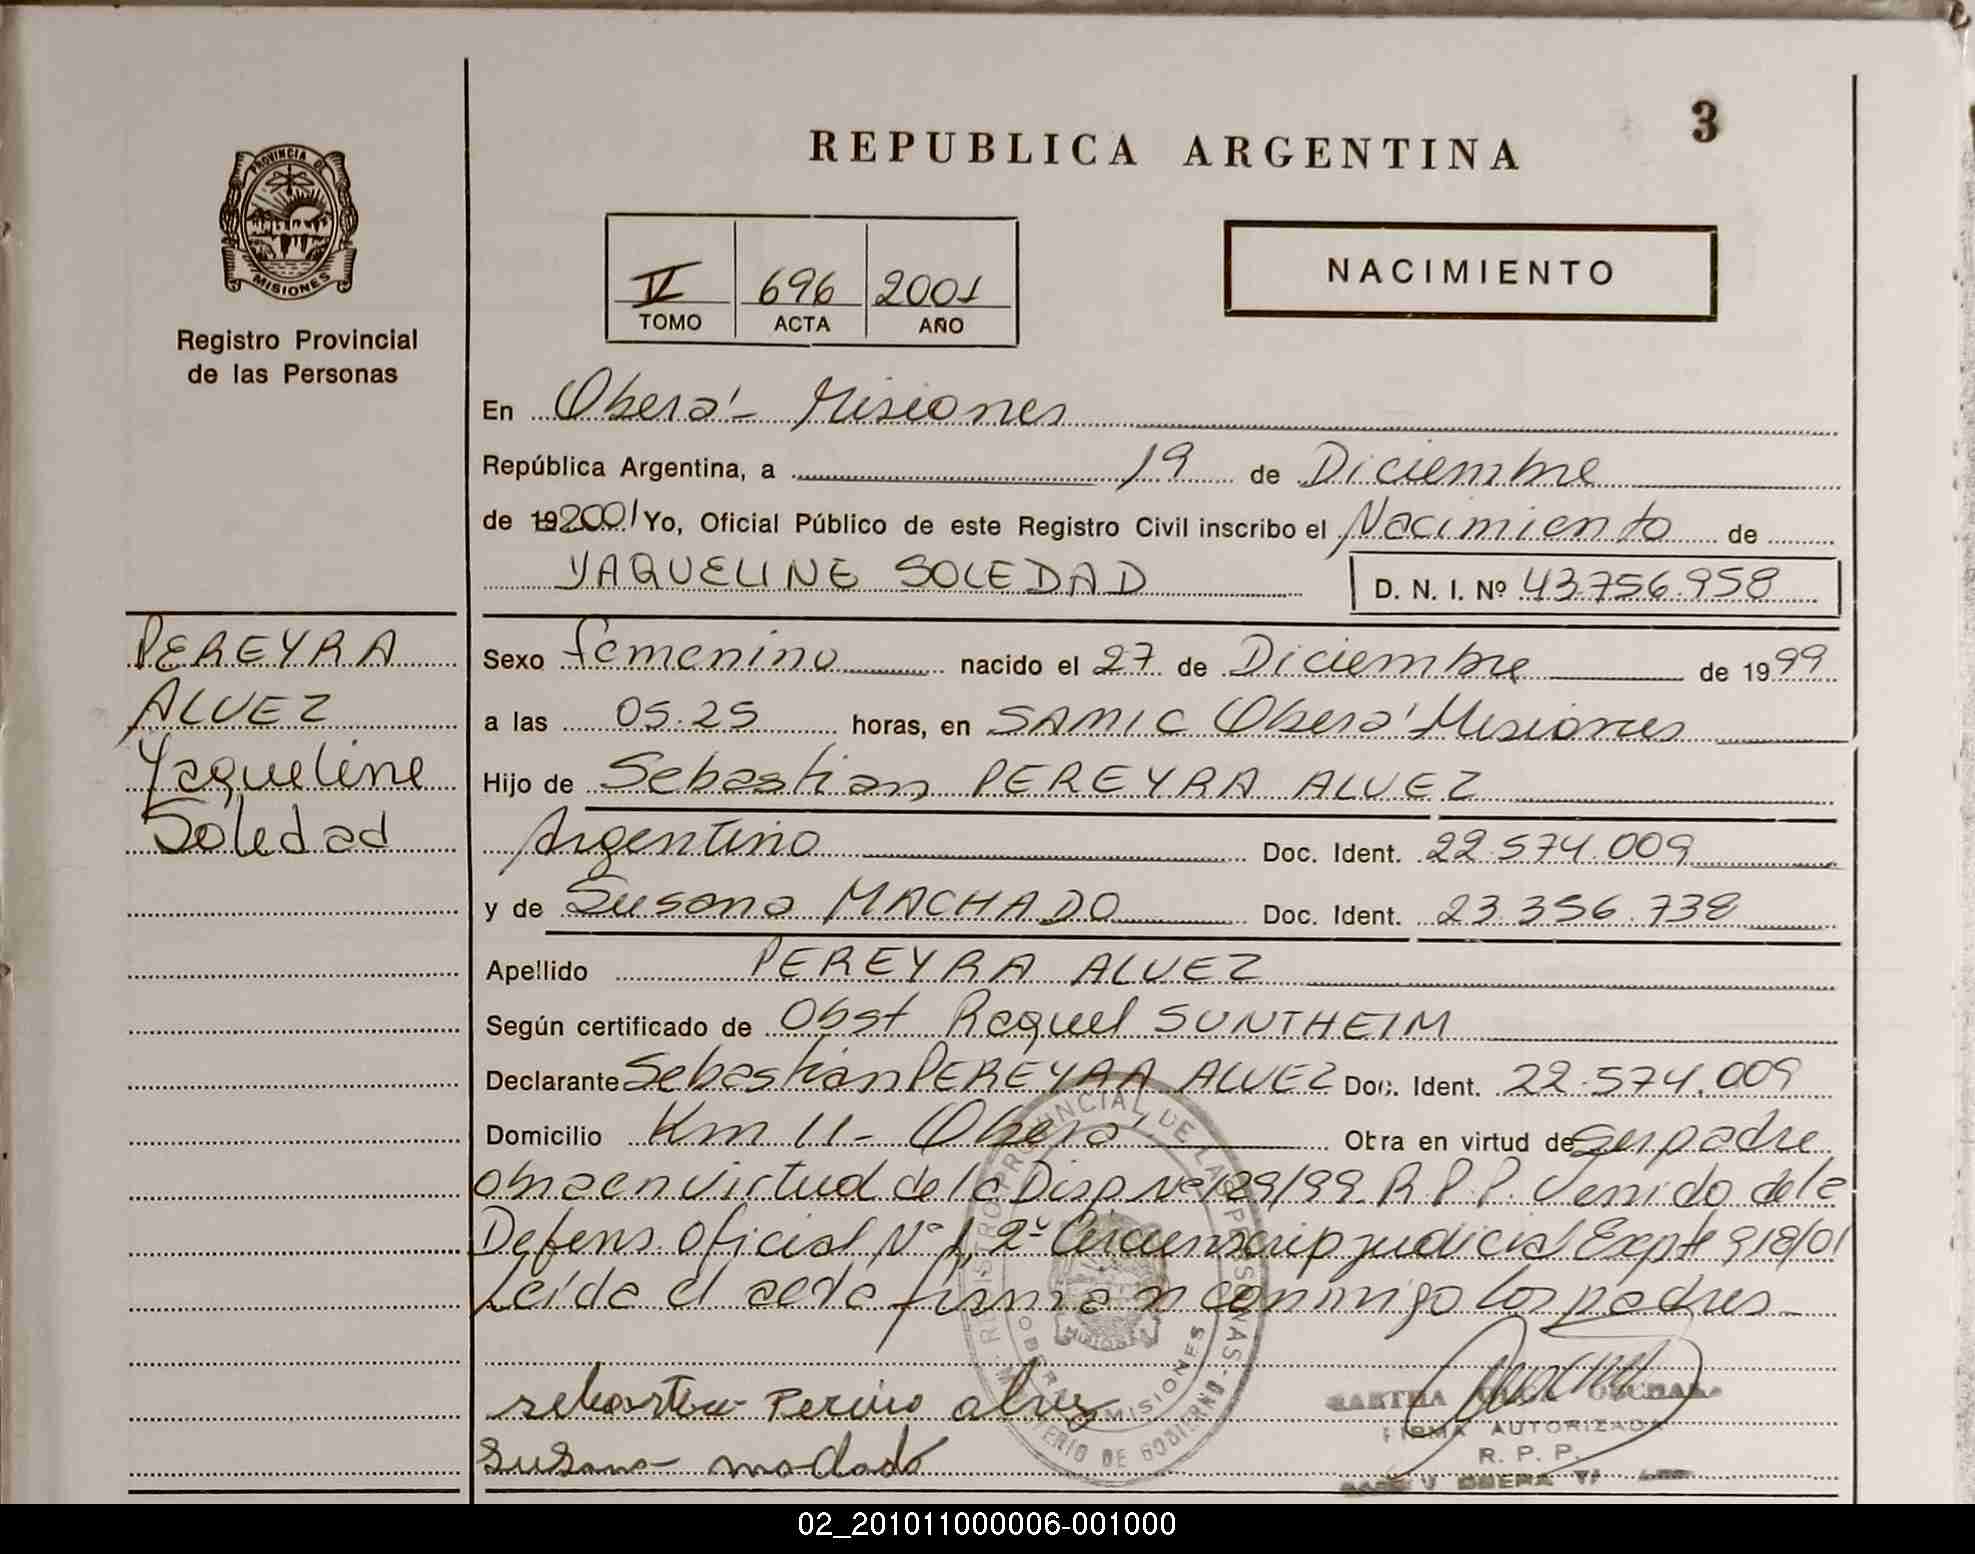 3
REPUBLICA ARGENTINA
PROVINCIA DE
MISIONES
Registro Provincial
de las Personas
IV 696 2001
TOMO ACTA AÑO
NACIMIENTO
En Oberá - Misiones
República Argentina, a 19 de Diciembre
de 19 2001 Yo, Oficial Público de este Registro Civil inscribo el Nacimiento de
YAQUELINE SOLEDAD D. N. I. Nº 43.756.958
PEREYRA
ALVEZ
Yaqueline
Soledad
Sexo femenino nacido el 27 de Diciembre de 1999
a las 05.25 horas, en SAMIC Oberá Misiones
Hijo de Sebastian PEREYRA ALVEZ
Argentino Doc. Ident. 22.574.009
y de Susana MACHADO Doc. Ident. 23.356.738
Apellido PEREYRA ALVEZ
Según certificado de Obst Raquel SUNTHEIM
Declarante Sebastian PEREYRA ALVEZ Doc. Ident. 22.574.009
Domicilio Km 11 - Oberá Obra en virtud de ser padre
obra en virtud de la Disp Nº 129/99 R.P.P. Venido de la
Defens. Oficial Nº 1, 2º Circunscrip judicial Expte 918/01
Leída el acta firman conmigo los padres
REGISTRO PROVINCIAL DE LAS PERSONAS
MINISTERIO DE GOBIERNO
OBERA MISIONES
alvez
Susana
FIRMA AUTORIZADA
R. P. P.
OBERA
02_201011000006-001000